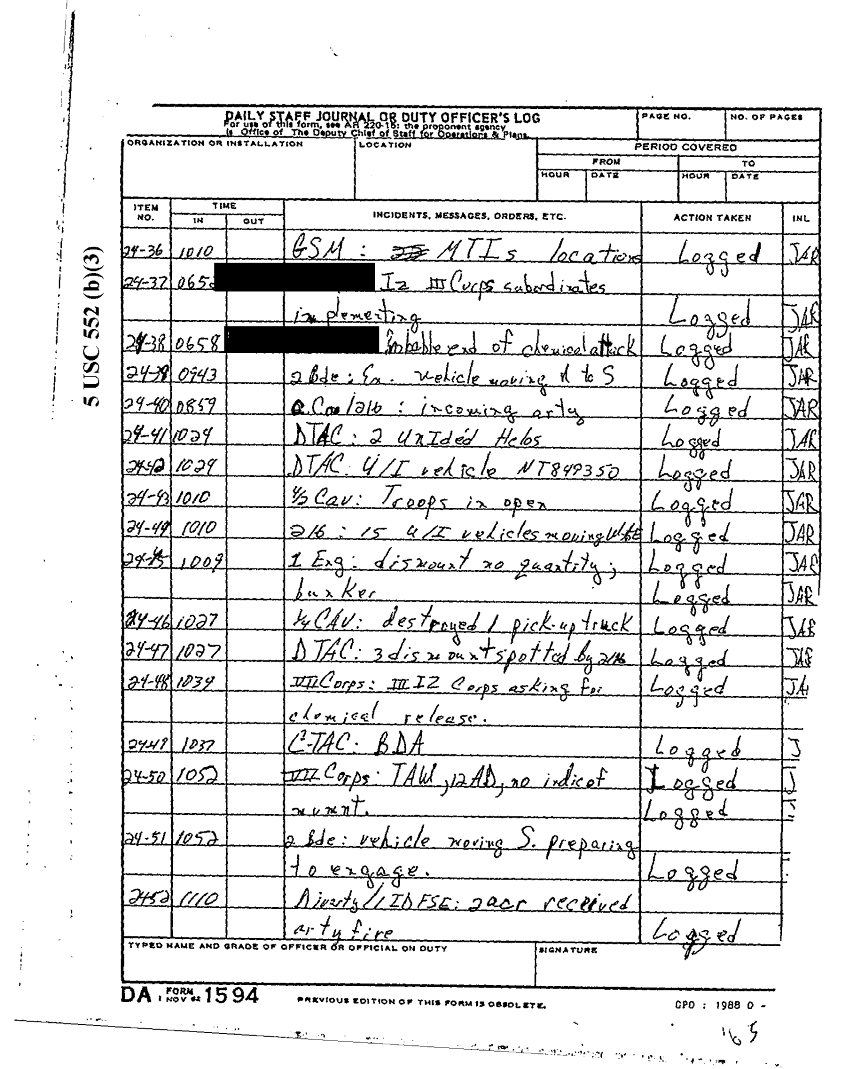 DAILY STAFF JOURNAL OR DUTY OFFICER'S LOG
For use of this form, see AR 220-15; the proponent agency
is Office of The Deputy Chief of Staff for Operations & Plans.
PAGE NO.
NO. OF PAGES
ORGANIZATION OR INSTALLATION
LOCATION
PERIOD COVERED
FROM
TO
HOUR
DATE
HOUR
DATE
ITEM NO.
TIME
IN
OUT
INCIDENTS, MESSAGES, ORDERS, ETC.
ACTION TAKEN
INL
5 USC 552 (b)(3)
24-36 1010 GSM: MTIs locations Logged JAR
24-37 Iz III Corps subordinates
implementing Logged JAR
24-38 0658 Probable end of chemical attack Logged JAR
24-39 0943 2 Bde: En. vehicle moving N to S Logged JAR
24-40 0859 : incoming arty Logged JAR
24-41 1024 DTAC: 2 UnIded Helos Logged JAR
24-42 1029 DTAC: U/I vehicle NT849350 Logged JAR
24-43 1010 Cav: Troops in open Logged JAR
24-44 1010 2/16: 15 U/I vehicles moving Logged JAR
24-45 1009 1 Eng: dismount no quantity;
bunker Logged JAR
Logged JAR
24-46 1027 1/4 CAV: destroyed 1 pick-up truck Logged JAR
24-47 1027 DTAC: 3 dismount spotted by 2/16 Logged JAR
24-48 1034 VII Corps: III IZ Corps asking for Logged JA
chemical release.
24-49 1037 C-TAC: BDA Logged J
24-50 1052 VII Corps: TAW, 12AD, no indic of Logged J
mvmnt. Logged
24-51 1052 2 Bde: vehicle moving S. preparing
to engage. Logged
24-52 1110 Divarty/1IDFSE: 2acr received
arty fire Logged
TYPED NAME AND GRADE OF OFFICER OR OFFICIAL ON DUTY
SIGNATURE
DA FORM 1 NOV 62 1594
PREVIOUS EDITION OF THIS FORM IS OBSOLETE.
GPO : 1988 O -
165